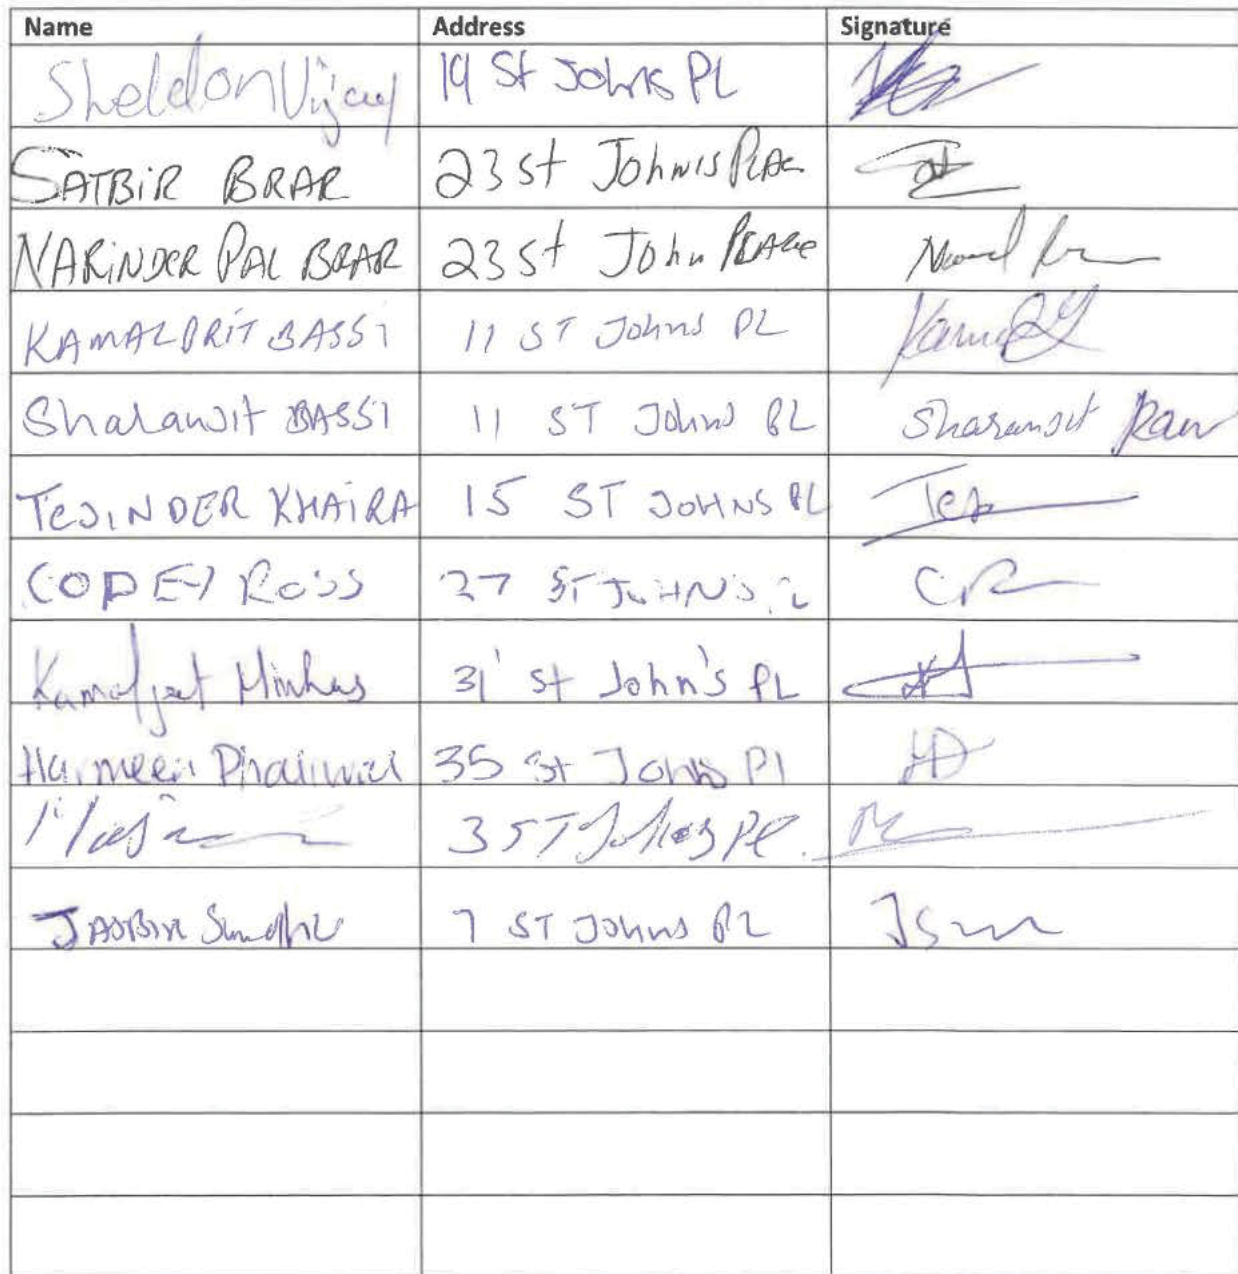 Name Address Signature
Sheldon Vijay 19 St Johns PL
SATBIR BRAR 23 St John's PLACE
NARINDER PAL BRAR 23 St John PLACE
KAMALPRIT BASSI 11 ST Johns PL
Sharanjit BASSI 11 ST Johns PL Sharanjit Kaur
TEJINDER KHAIRA 15 ST JOHNS PL Tej
CODEY ROSS 27 ST JOHNS PL CR
Kamaljeet Minhas 31 St John's PL
Harmeen Dhaliwal 35 St Johns Pl HD
3 ST Johns Pl.
JASBIR Sundhu 7 ST Johns PL